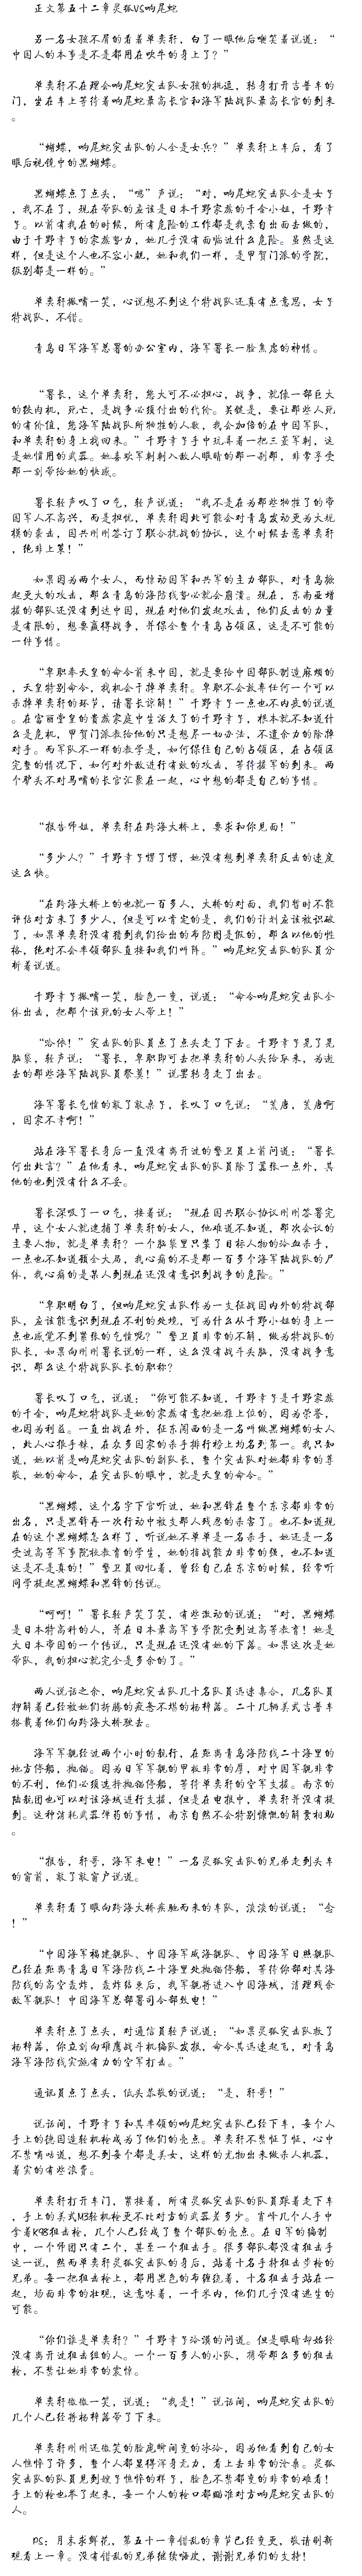 正文第五十二章灵狐VS响尾蛇
另一名女孩不屑的看着单奕轩，白了一眼他后嘲笑着说道：“
中国人的本事是不是都用在吹牛的身上了？”
单奕轩不在理会响尾蛇突击队女孩的挑逗，转身打开吉普车的
门，坐在车上等待着响尾蛇最高长官和海军陆战队最高长官的到来
。
“蝴蝶，响尾蛇突击队的人全是女兵？”单奕轩上车后，看了
眼后视镜中的黑蝴蝶。
黑蝴蝶点了点头，“嗯”声说：“对，响尾蛇突击队全是女子
，我不在了，现在带队的应该是日本千野家族的千金小姐，千野幸
子。以前有我在的时候，所有危险的工作都是我亲自出面去做的，
由于千野幸子的家族势力，她几乎没有面临过什么危险。虽然是这
样，但是这个人也不容小觑，她和我们一样，是甲贺门派的学院，
级别都是一样的。”
单奕轩撇嘴一笑，心说想不到这个特战队还真有点意思，女子
特战队，不错。
青岛日军海军总署的办公室内，海军署长一脸焦虑的神情。
“署长，这个单奕轩，您大可不必担心，战争，就像一部巨大
的绞肉机，死亡，是战争必须付出的代价。关键是，要让那些人死
的有价值，您海军陆战队所牺牲的人数，我会加倍的在中国军队，
和单奕轩的身上找回来。”千野幸子手中玩弄着一把三菱军刺，这
是她惯用的武器。她喜欢军刺刺入敌人眼睛的那一刹那，非常享受
那一刻带给她的快感。
署长轻声叹了口气，轻声说道：“我不是在为那些牺牲了的帝
国军人不高兴，而是担忧，单奕轩因此可能会对青岛发动更为大规
模的袭击，国共刚刚签订了联合抗战的协议，这个时候去惹单奕轩
，绝非上策！”
如果因为两个女人，而惊动国军和共军的主力部队，对青岛掀
起更大的攻击，那么青岛的海防线势必就会崩溃。现在，东南亚增
援的部队还没有到达中国，现在对他们发起攻击，他们反击的力量
是有限的，想要赢得战争，并保全整个青岛占领区，这是不可能的
一件事情。
“卑职奉天皇的命令前来中国，就是要给中国部队制造麻烦的
，天皇特别命令，找机会干掉单奕轩。卑职不会放弃任何一个可以
杀掉单奕轩的环节，请署长谅解！”千野幸子一点也不内疚的说道
。在富丽堂皇的贵族家庭中生活久了的千野幸子，根本就不知道什
么是危机，甲贺门派教给他的只是想尽一切办法，不遗余力的除掉
对手。而军队不一样的教学是，如何保住自己的占领区，在占领区
完整的情况下，如何对外敌进行有效的攻击，等待援军的到来。两
个驴头不对马嘴的长官汇聚在一起，心中想的都是自己的事情。
“报告师姐，单奕轩在跨海大桥上，要求和你见面！”
“多少人？”千野幸子愣了愣，她没有想到单奕轩反击的速度
这么快。
“在跨海大桥上的也就一百多人，大桥的对面，我们暂时不能
评估对方来了多少人，但是可以肯定的是，我们的计划应该被识破
了，如果单奕轩没有猜到我们给出的布防图是假的，那么以他的性
格，绝对不会率领部队直接和我们叫阵。”响尾蛇突击队的队员分
析着说道。
千野幸子撇嘴一笑，脸色一变，说道：“命令响尾蛇突击队全
体出击，把那个该死的女人带上！”
“哈依！”突击队的队员点了点头走了下去。千野幸子晃了晃
脑袋，轻声说：“署长，卑职即可去把单奕轩的人头给取来，为逝
去的那些海军陆战队员祭奠！”说罢转身走了出去。
海军署长气愤的敲了敲桌子，长叹了口气说：“荒唐，荒唐啊
，国家不幸啊！”
站在海军署长身后一直没有离开过的警卫员上前问道：“署长
何出此言？”在他看来，响尾蛇突击队的队员除了嚣张一点外，其
他的也到没有什么不妥。
署长深吸了一口气，接着说：“现在国共联合协议刚刚签署完
毕，这个女人就逮捕了单奕轩的女人，他难道不知道，那次会议的
主要人物，就是单奕轩？一个脑袋里只装了目标人物的冷血杀手，
一点也不知道顾全大局，我心痛的不是那一百多个海军陆战队的尸
体，我心痛的是某人到现在还没有意识到战争的危险。”
“卑职明白了，但响尾蛇突击队作为一支征战国内外的特战部
队，应该能意识到现在不利的处境，可为什么从千野小姐的身上一
点也感觉不到紧张的气愤呢？”警卫员非常的不解，做为特战队的
队长，如果向刚刚署长说的一样，这么没有战斗头脑，没有战争意
识，那么这个特战队队长的职称？
署长叹了口气，说道：“你可能不知道，千野幸子是千野家族
的千金，响尾蛇特战队是她的家族有意把她推上位的，因为荣誉，
也因为利益。一直出战在外，征东闯西的是一名叫做黑蝴蝶的女人
，此人心狠手辣，在众多国家的杀手排行榜上均名列第一。我只知
道，她以前是响尾蛇突击队的副队长，整个突击队对她都非常的尊
敬，她的命令，在突击队的眼中，就是天皇的命令。”
“黑蝴蝶，这个名字下官听过，她和黑锋在整个东京都非常的
出名，只是黑锋再一次行动中被支那人残忍的杀害了。也不知道现
在的这个黑蝴蝶怎么样了，听说她不单单是一名杀手，她还是一名
受过高等军事院校教育的学生，她的指战能力非常的强，也不知道
这是不是真的！”警卫员回忆着，曾经自己在东京的时候，经常听
同学提起黑蝴蝶和黑锋的传说。
“呵呵！”署长轻声笑了笑，有些激动的说道：“对，黑蝴蝶
是日本特高科的人，并在日本最高军事学院受到过高等教育！她是
大日本帝国的一个传说，只是现在还没有她的下落。如果这次是她
带队，我的担心就完全是多余的了。”
两人说话之余，响尾蛇突击队几十名队员迅速集合，几名队员
押解着已经被她们折腾的疲惫不堪的杨梓落。二十几辆美式吉普车
搭载着他们向跨海大桥驶去。
海军军舰经过两个小时的航行，在距离青岛海防线二十海里的
地方停船，抛锚。因为日军军舰的甲板非常的厚，对中国军舰非常
的不利，他们必须选择抛锚停船，等待单奕轩的空军支援。南京的
陆航团也可以对该海域进行支援，但是在电报中，单奕轩并没有提
到。这种消耗武器弹药的事情，南京自然不会特别慷慨的解囊相助
。
“报告，轩哥，海军来电！”一名灵狐突击队的兄弟走到头车
的窗前，敲了敲窗户说道。
单奕轩看了眼向跨海大桥疾驰而来的车队，淡淡的说道：“念
！”
“中国海军福建舰队、中国海军威海舰队、中国海军日照舰队
已经在距离青岛日军海防线二十海里处抛锚停船，等待你部对其海
防线的高空轰炸，轰炸结束后，我军舰将进入中国海域，清理残余
敌军舰队！中国海军总部署司令部致电！”
单奕轩点了点头，对通信员轻声说道：“如果灵狐突击队救了
杨梓落，你立刻向雄鹰战斗机编队发报，命令其迅速起飞，对青岛
海军海防线实施有力的空军打击。”
通讯员点了点头，低头恭敬的说道：“是，轩哥！”
说话间，千野幸子和其率领的响尾蛇突击队已经下车，每个人
手上的德国造轻机枪成为了他们的亮点。单奕轩不禁怔了怔，心中
不禁嘀咕道，想不到每个都是美女，这样的尤物出来做杀人机器，
着实的有些浪费。
单奕轩打开车门，紧接着，所有灵狐突击队的队员跟着走下车
，手上的美式M3轻机枪更不比对方的武器差多少。肖峰几个人手中
拿着K98狙击枪，几个人已经成了整个部队的亮点。在日军的编制
中，一个师团只有二个，甚至一个狙击手。很多部队都没有狙击手
这一说，然而单奕轩灵狐突击队的身后，站着十名手持狙击步枪的
兄弟。每一把狙击枪上，都用黑色的布缠绕着，十名狙击手站在一
起，场面非常的壮观，这意味着，一千米内，他们几乎没有逃生的
可能。
“你们谁是单奕轩？”千野幸子冷漠的问道。但是眼睛却始终
没有离开过狙击组的人。一个一百多人的小队，携带那么多的狙击
枪，不禁让她非常的震惊。
单奕轩微微一笑，说道：“我是！”说话间，响尾蛇突击队的
几个人已经将杨梓落带了下来。
单奕轩刚刚还微笑的脸庞瞬间变的冰冷，因为他看到自己的女
人憔悴了许多，整个人都显得浑身无力，看上去非常的沧桑。灵狐
突击队的队员见到嫂子憔悴的样子，脸色不禁都变的非常的难看！
手上的枪也举了起来，每一个人的枪口都瞄准对方响尾蛇突击队的
人。
PS：月末求鲜花，第五十一章错乱的章节已经变更，敬请刷新
观看上一章。没有错乱的兄弟继续嗨皮，谢谢兄弟们的支持！